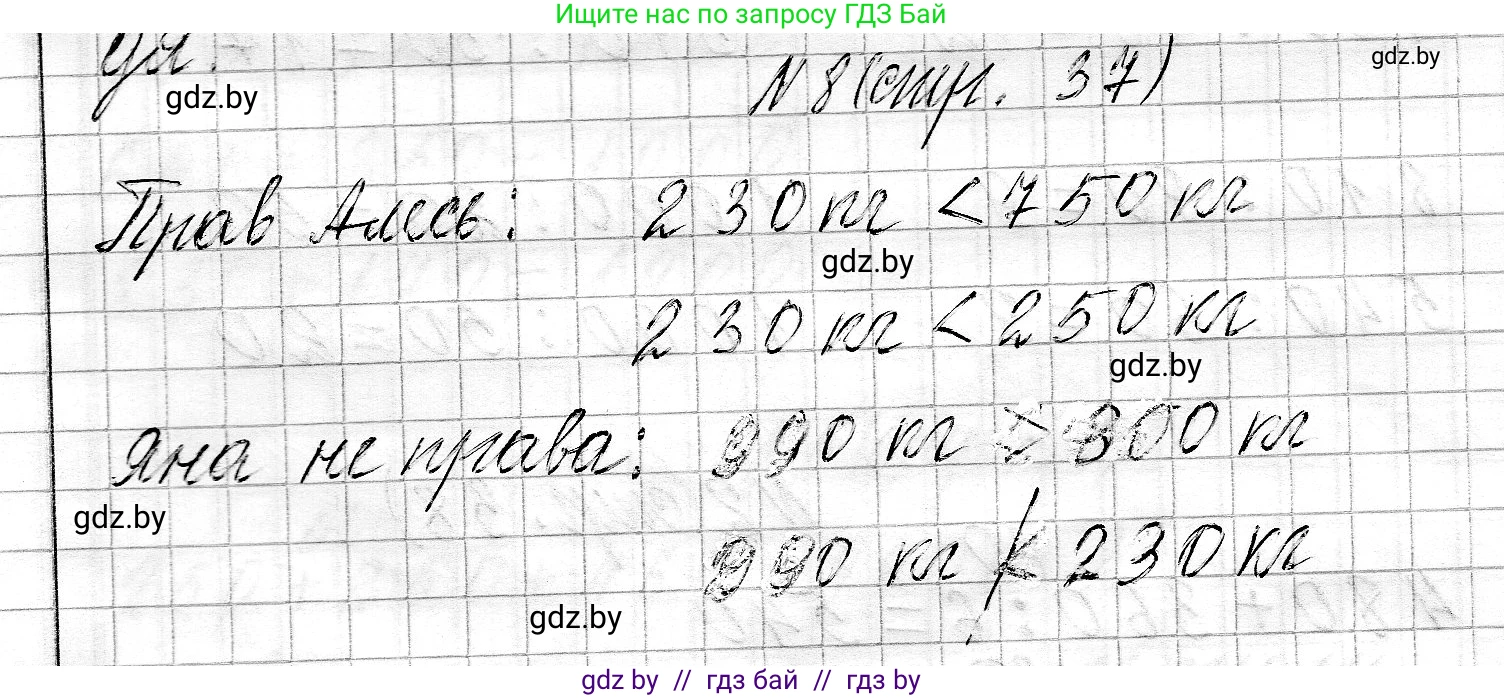 Ищите нас по запросу ГДЗ Бай
gdz.by
gdz.by
N 8 (стр. 37)
Прав Алесь: 230 кг < 750 кг
gdz.by
230 кг < 250 кг
gdz.by
Яна не права: 990 кг > 800 кг
gdz.by
990 кг ≮ 230 кг
gdz.by
gdz by // гдз бай // гдз by